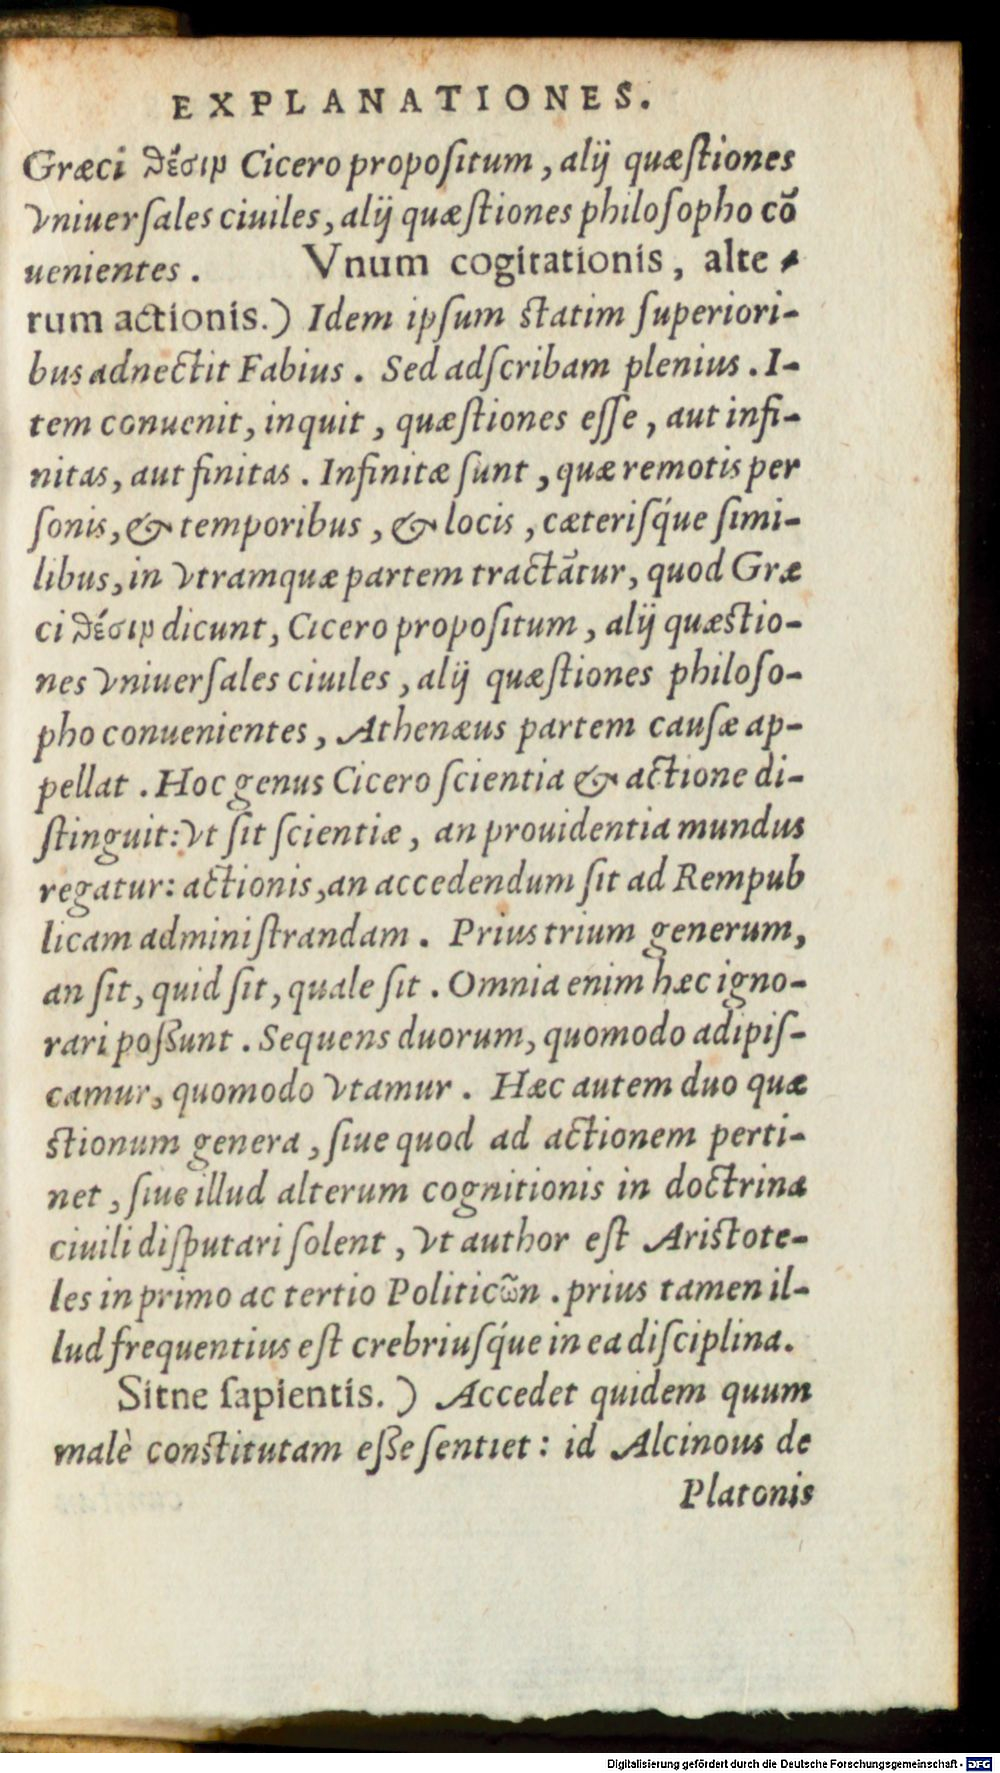 EXPLANATIONES.
Græci θέσιν Cicero propoſitum, alij quæſtiones
vniuerſales ciuiles, alij quæſtiones philoſopho cõ
uenientes. Vnum cogitationis, alte-
rum actionis.) Idem ipſum ſtatim ſuperiori-
bus adnectit Fabius. Sed adſcribam plenius. I-
tem conuenit, inquit, quæſtiones eſſe, aut infi-
nitas, aut finitas. Infinitæ ſunt, quæ remotis per
ſonis, & temporibus, & locis, cæteriſq́ue ſimi-
libus, in vtramquæ partem tractãtur, quod Græ
ci θέσιν dicunt, Cicero propoſitum, alij quæſtio-
nes vniuerſales ciuiles, alij quæſtiones philoſo-
pho conuenientes, Athenæus partem cauſæ ap-
pellat. Hoc genus Cicero ſcientia & actione di-
ſtinguit: vt ſit ſcientiæ, an prouidentia mundus
regatur: actionis, an accedendum ſit ad Rempub
licam adminiſtrandam. Prius trium generum,
an ſit, quid ſit, quale ſit. Omnia enim hæc igno-
rari poßunt. Sequens duorum, quomodo adipiſ-
camur, quomodo vtamur. Hæc autem duo quæ
ſtionum genera, ſiue quod ad actionem perti-
net, ſiue illud alterum cognitionis in doctrina
ciuili diſputari ſolent, vt author eſt Ariſtote-
les in primo ac tertio Politicῶn. prius tamen il-
lud frequentius eſt crebriuſq́ue in ea diſciplina.
Sitne ſapientis.) Accedet quidem quum
malè conſtitutam eße ſentiet: id Alcinous de
Platonis
Digitalisierung gefördert durch die Deutsche Forschungsgemeinschaft - DFG